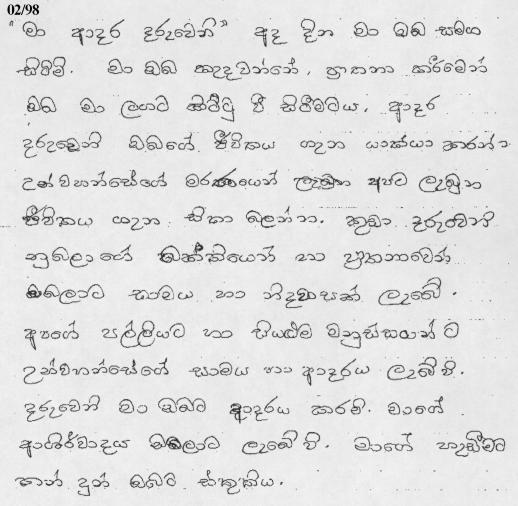 02/98
"මා ආදර දරුවෙනි" අද දින මා ඔබ සමග
සිටිමි. මා ඔබ කැදවන්නේ, ප්‍රාතනා කිරීමෙන්
ඔබ මා ලගට කිට්ටු වී සිටීමටය. ආදර
දරුවෙනි ඔබගේ ජීවිතය ගැන යාක්යා කරන්න
උන්වහන්සේගේ මරණයෙන් ලැබුන අපට ලැබුන
ජීවිතය ගැන සිතා බලන්න. කුඩා දරුවෙනි
නුබලාගේ බක්තියෙන් හා ප්‍රාතනාවෙන්
ඔබලාට සාමය හා නිදහසක් ලැබේ.
අපගේ පල්ලියට හා සියළුම මනුස්සයන්ට
උන්වහන්සේගේ සාමය හා ආදරය ලැබේවි.
දරුවෙනි මා ඔබට ආදරය කරමි. මාගේ
ආශිර්වාදය ඔබලාට ලැබේවි. මාගේ හැඬීමට
කන් දුන් ඔබට ස්තුතිය.